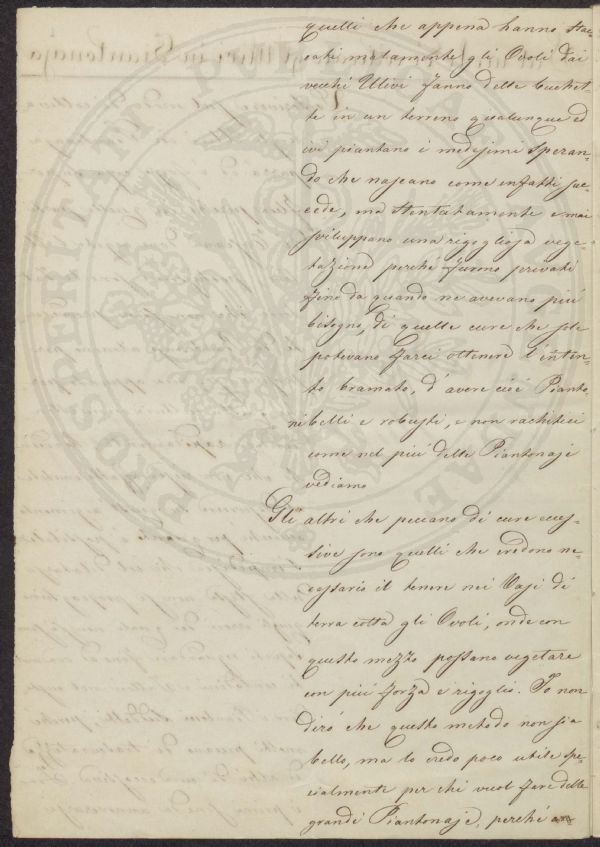 quelli che appena hanno stac-
cati malamente gli Ovoli dai
vecchi Ulivi fanno delle buchet-
te in un terreno qualunque ed
ivi piantano i medesimi speran-
do che nascano come infatti suc-
cede, ma stentatamente e mai
sviluppano una rigogliosa vege-
tazione perché furono privati
fino da quando ne avevano più
bisogno, di quelle cure che sole
potevano farci ottenere l'inten-
to bramato, d'avere cioè Pianto-
ni belli e robusti, e non rachitici
come nel più delle Piantonaje
vediamo
Gli altri che peccano di cure ecces-
sive sono quelli che credono ne-
cessario il tenere nei Vasi di
terra cotta gli Ovoli, onde con
questo mezzo possano vegetare
con più forza e rigoglio. Io non
dirò che questo metodo non sia
bello, ma lo credo poco utile spe-
cialmente per chi vuol fare delle
grandi Piantonaje, perché an